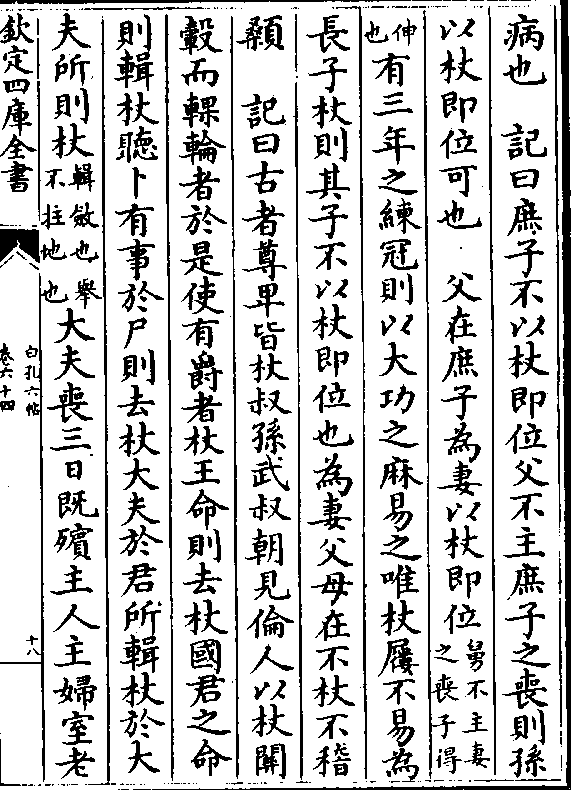 病也　記曰庶子不以杖即位父不主庶子之喪則孫
以杖即位可也　父在庶子為妻以杖即位舅不主妻之喪子得
伸也有三年之練冠則以大功之麻易之唯杖屨不易為
長子杖則其子不以杖即位也為妻父母在不杖不稽
顙　記曰古者尊卑皆杖叔孫武叔朝見倫人以杖關
轂而輠輪者於是使有爵者杖王命則去杖國君之命
則輯杖聽卜有事於尸則去杖大夫於君所輯杖於大
夫所則杖輯斂也舉不拄地也大夫喪三日既殯主人主婦室老
欽定四庫全書
白孔六帖
卷六十四
十八